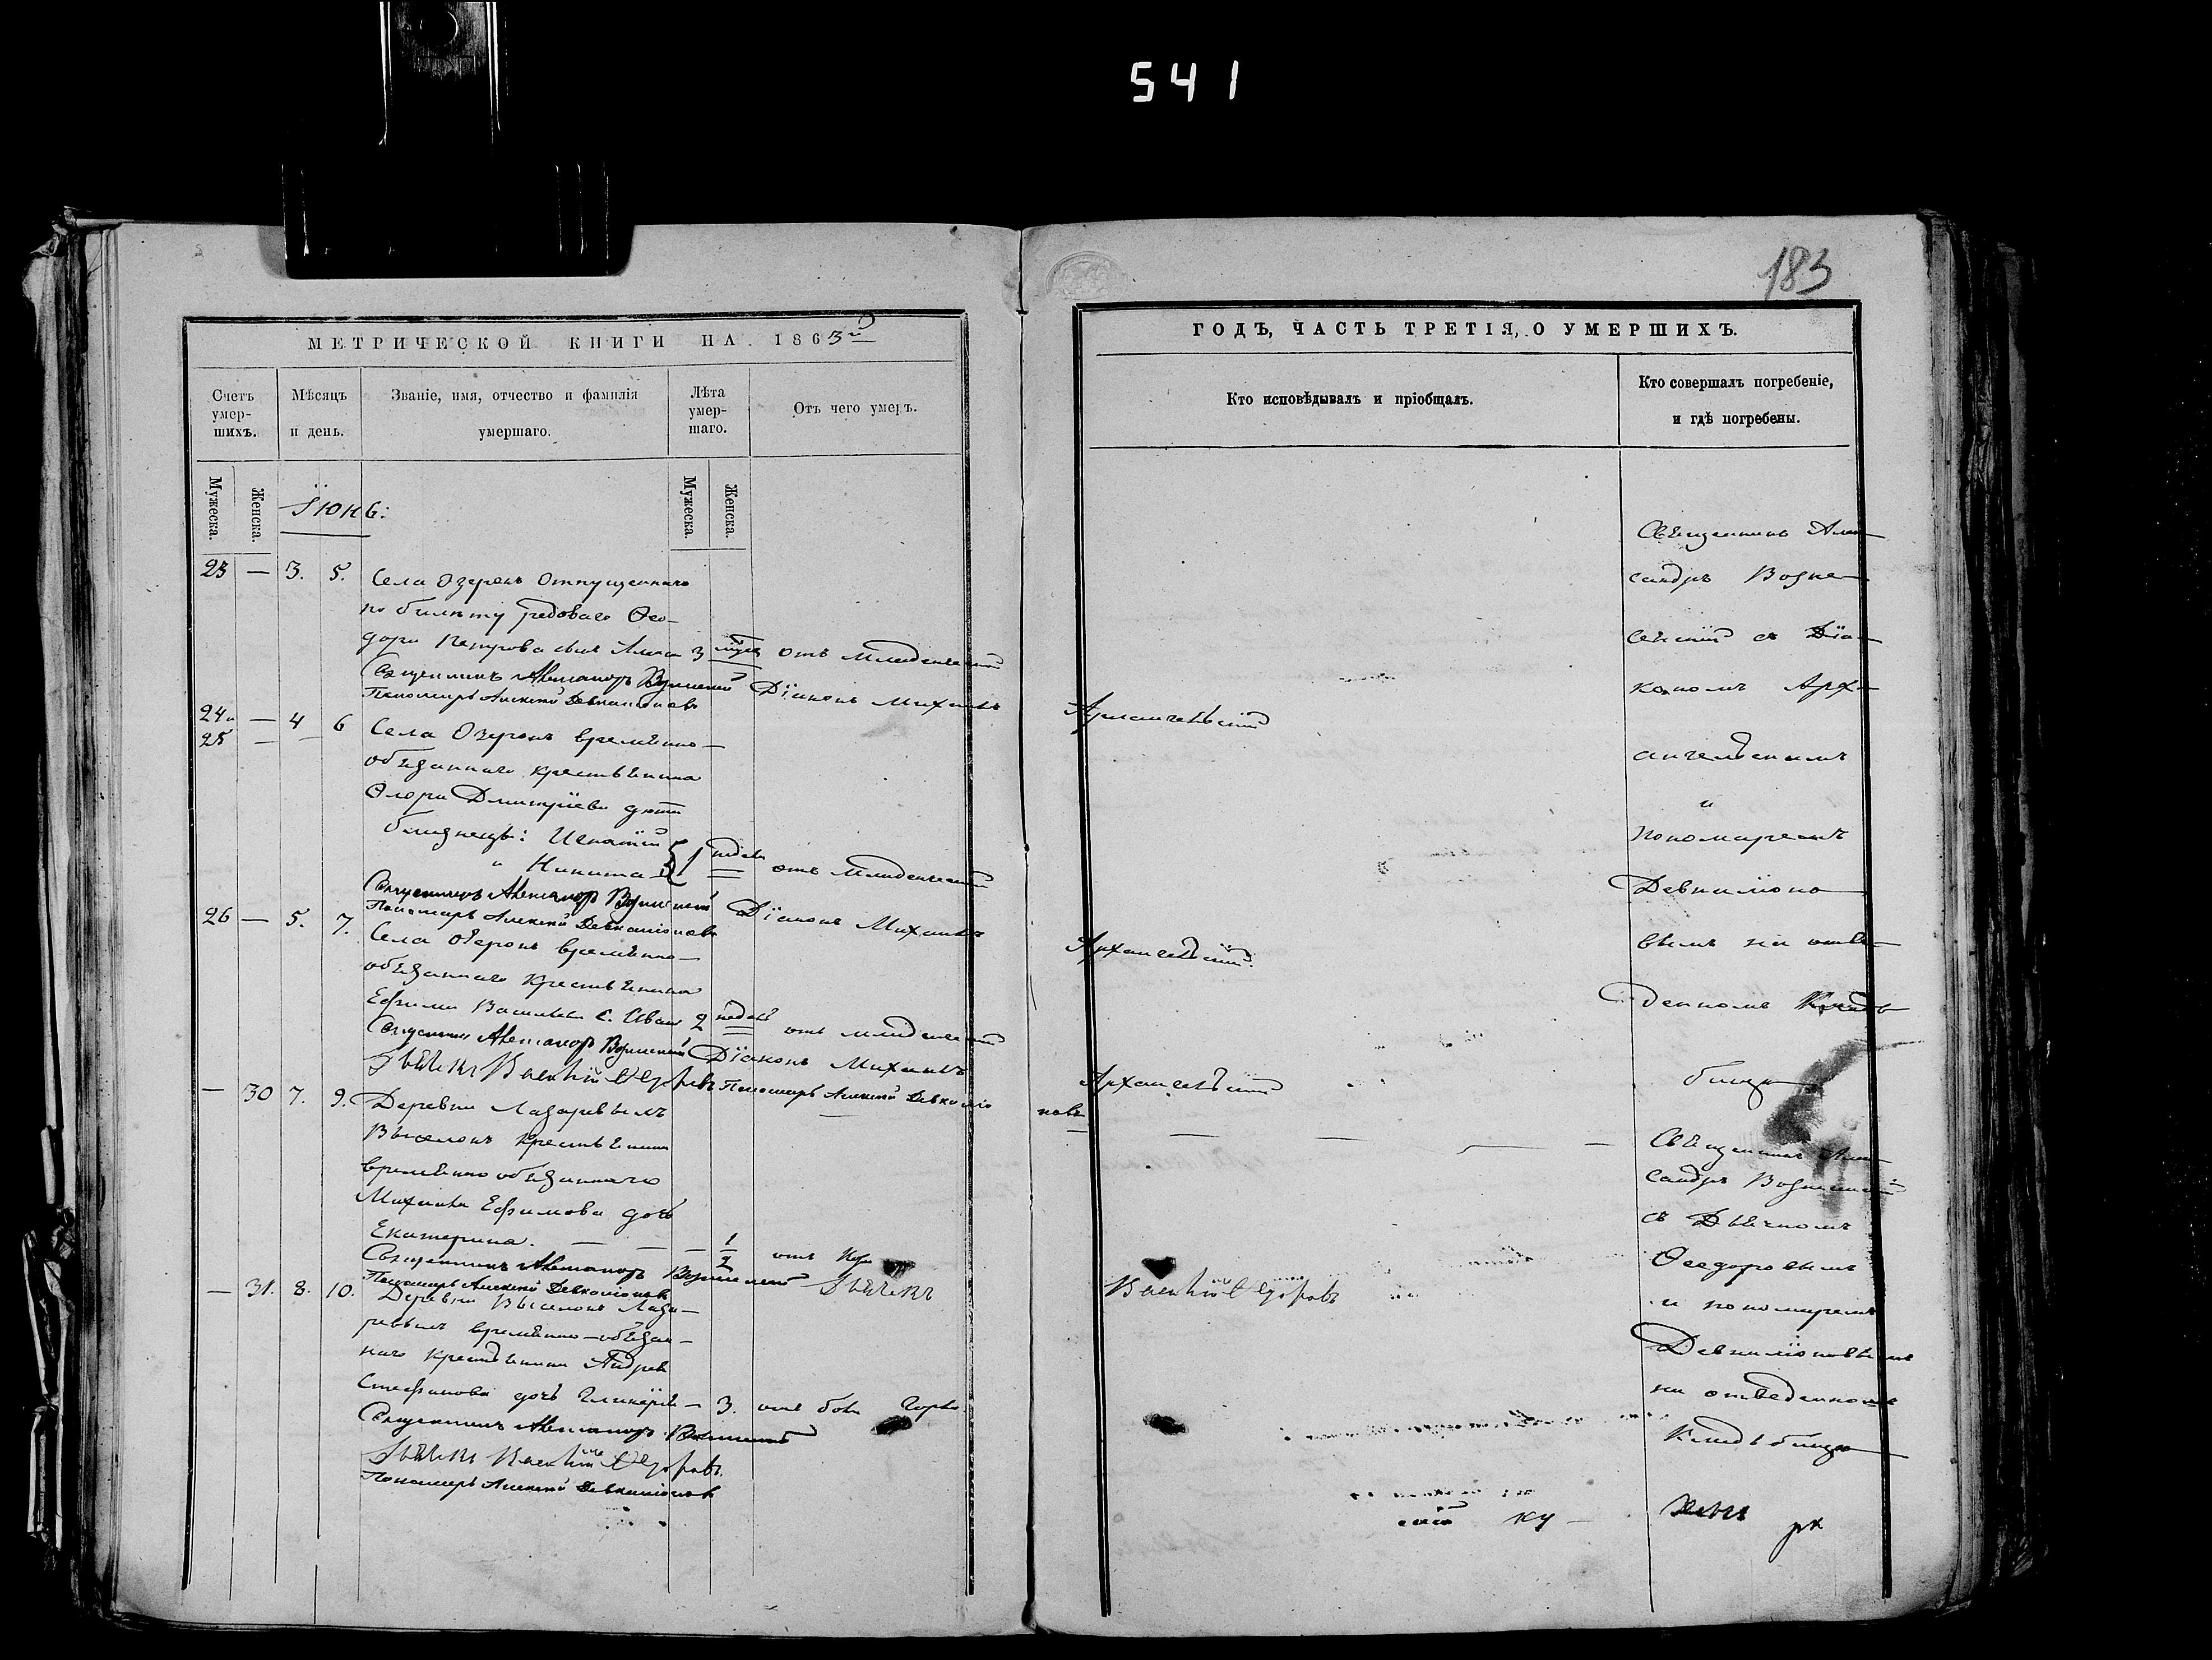 541
183
МЕТРИЧЕСКОЙ КНИГИ НА 1863й
Счетъ умер-шихъ.
Мѣсяцъ и день.
Званіе, имя, отчество и фамилія умершаго.
Лѣта умер-шаго.
Отъ чего умеръ.
Мужеска.
Женска.
Мужеска.
Женска.
Іюнь:
23 — 3. 5. Села Озерокъ отпущеннаго
по билету рядоваго Ѳео-
дора Петрова сынъ 3 отъ младенческой
Священникъ Александръ Вознесенскій Діаконъ Михаилъ
Пономарь Алексѣй Девкаліоновъ
24 и — 4 6 Села Озерокъ временно-
25 —
обязаннаго крестьянина
Флора Дмитріева дѣти
близнецы: Игнатій
и Никита 1 недѣл отъ младенческой
Священникъ Александръ Вознесенскій Діаконъ Михаилъ
Пономарь Алексѣй Девкаліоновъ
26 — 5. 7. Села Озерокъ временно-
обязаннаго крестьянина
Ефима Васильева с. Иванъ 2 недѣл отъ младенческой
Священникъ Александръ Вознесенскій Діаконъ Михаилъ
Дьячекъ Ѳедоровъ Пономарь Алексѣй Девкаліо
— 30 7. 9. Деревни Лазаревыхъ
Выселокъ крестьянина
временно обязаннаго
Михаила Ефимова дочь
Екатерина. — — — 1/2 отъ
Священникъ Александръ Вознесенскій Дьячекъ
Пономарь Алексѣй Девкаліоновъ
— 31. 8. 10. Деревни Выселокъ Лаза-
ревыхъ временно-обязан-
наго крестьянина Андрея
Стефанова дочь Гликерія — 3. отъ боли Горла.
Священникъ Александръ Вознесенскій
Дьячекъ Ѳедоровъ
Пономарь Алексѣй Девкаліоновъ
ГОДЪ, ЧАСТЬ ТРЕТІЯ, О УМЕРШИХЪ.
Кто исповѣдывалъ и пріобщалъ.
Кто совершалъ погребеніе,
и гдѣ погребены.
Архангельскій
Архангельскій.
Архангельскій
новъ
Ѳедоровъ
Священникъ Алек-
сандръ Возне-
сенскій съ Діа-
кономъ Арх-
ангельскимъ
и
пономаремъ
Девкаліоно-
вымъ на отве-
денномъ Кладъ
бищѣ
Священникъ Алек-
сандръ Вознесенскій
съ Дьячкомъ
Ѳеодоровымъ
и пономаремъ
Девкаліоновымъ
на отведенномъ
Кладъбищѣ